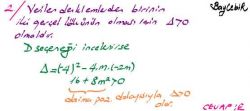 2/ Verilen denklemlerden birinin
iki gerçel kökünün olması için Δ>0
olmalıdır.
D seçeneği incelenirse
Δ=(-4)²-4.m.(-2m)
16+8m²>0
daima poz. dolayısıyla Δ>0
olur.
CEVAP:E